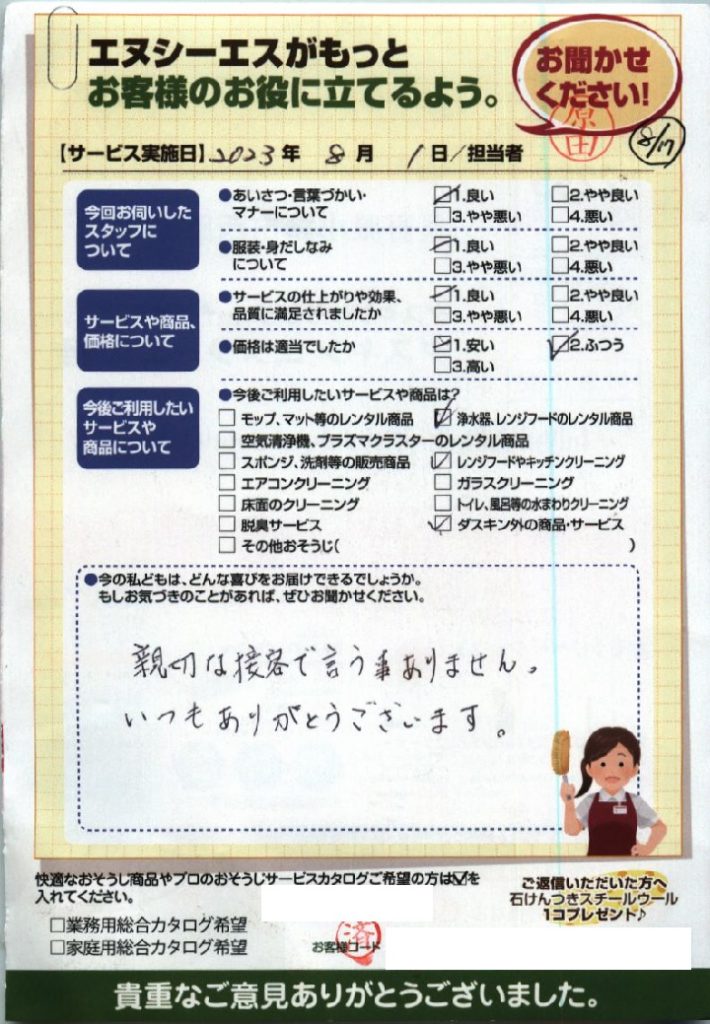 エヌシーエスがもっと
お客様のお役に立てるよう。
お聞かせ
ください!
原田
8/17
【サービス実施日】2023年 8月 1日/担当者
今回お伺いした
スタッフに
ついて
●あいさつ・言葉づかい・
マナーについて
☑1.良い □2.やや良い
□3.やや悪い □4.悪い
●服装・身だしなみ
について
☑1.良い □2.やや良い
□3.やや悪い □4.悪い
サービスや商品、
価格について
●サービスの仕上がりや効果、
品質に満足されましたか
☑1.良い □2.やや良い
□3.やや悪い □4.悪い
●価格は適当でしたか
☑1.安い ☑2.ふつう
□3.高い
今後ご利用したい
サービスや
商品について
●今後ご利用したいサービスや商品は?
□ モップ、マット等のレンタル商品 ☑ 浄水器、レンジフードのレンタル商品
□ 空気清浄機、プラズマクラスターのレンタル商品
□ スポンジ、洗剤等の販売商品 ☑ レンジフードやキッチンクリーニング
□ エアコンクリーニング □ ガラスクリーニング
□ 床面のクリーニング □ トイレ、風呂等の水まわりクリーニング
□ 脱臭サービス ☑ ダスキン外の商品・サービス
□ その他おそうじ( )
●今の私どもは、どんな喜びをお届けできるでしょうか。
もしお気づきのことがあれば、ぜひお聞かせください。
親切な接客で言う事ありません。
いつもありがとうございます。
快適なおそうじ商品やプロのおそうじサービスカタログご希望の方は☑を
入れてください。
□業務用総合カタログ希望
□家庭用総合カタログ希望
済
お客様コード
ご返信いただいた方へ
石けんつきスチールウール
1コプレゼント♪
貴重なご意見ありがとうございました。